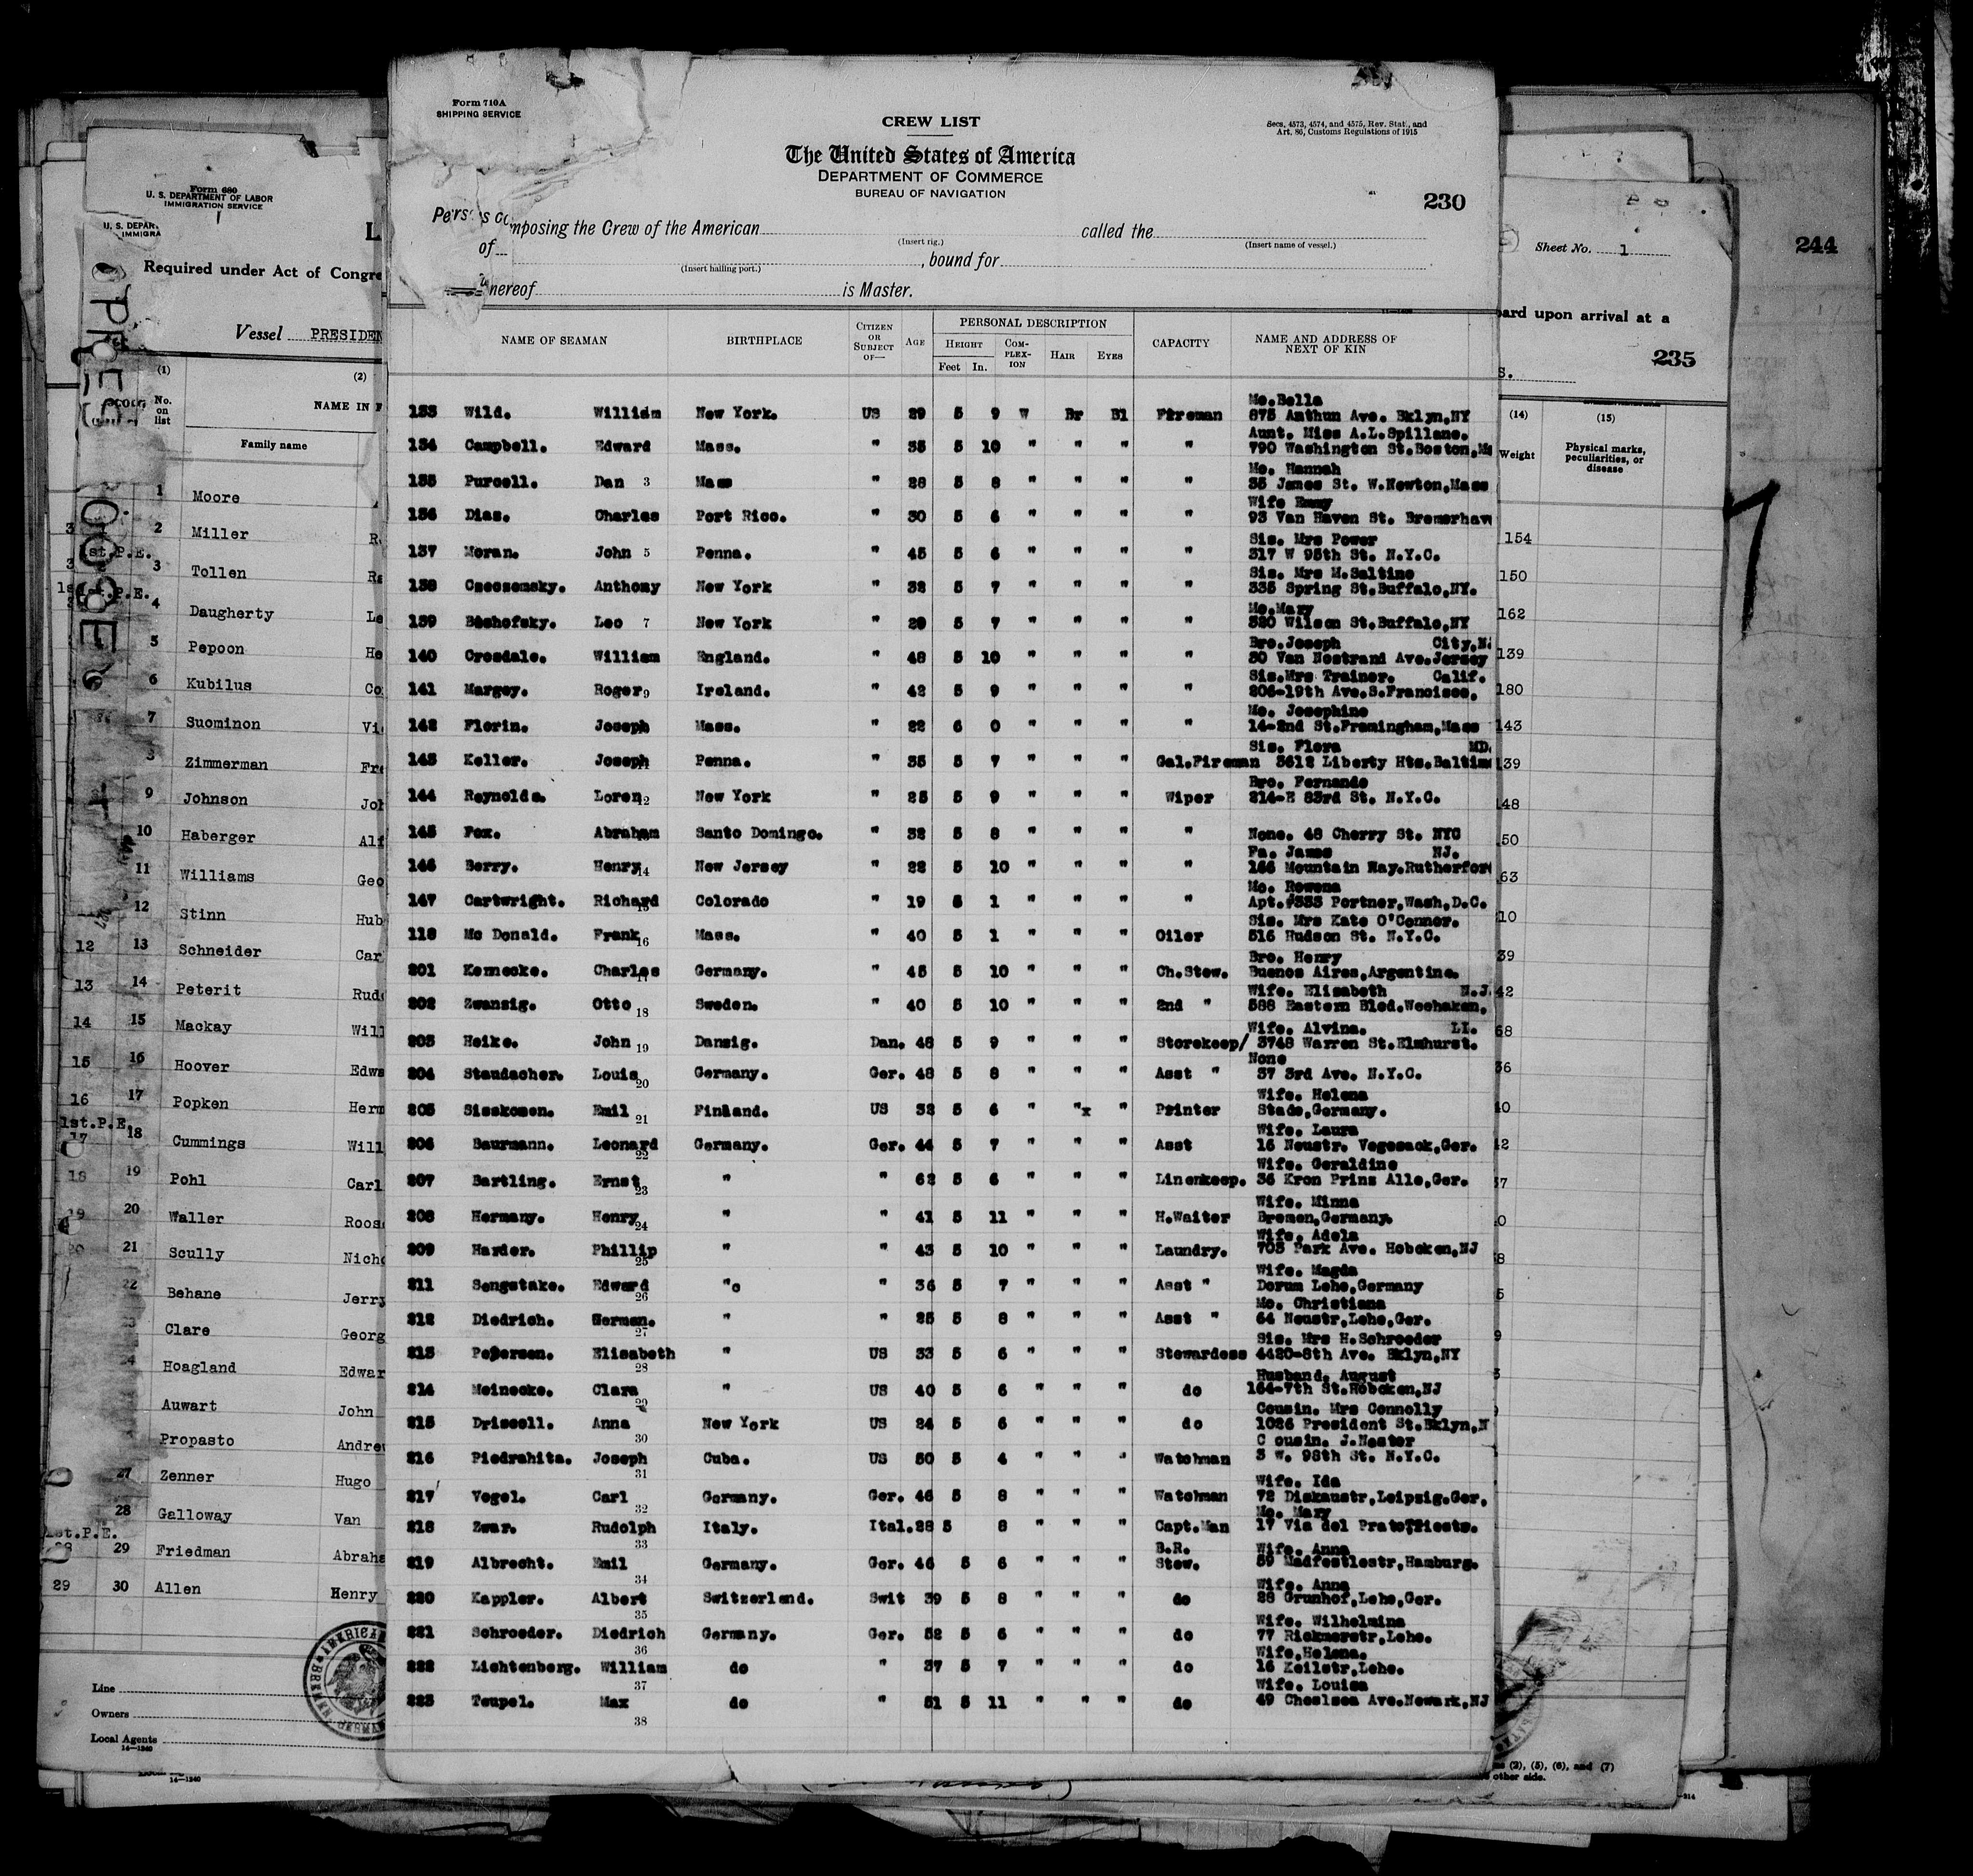 Form 710A
SHIPPING SERVICE
CREW LIST
Secs. 4573, 4574, and 4575, Rev. Stat., and
Art. 86, Customs Regulations of 1915
The United States of America
DEPARTMENT OF COMMERCE
BUREAU OF NAVIGATION
230
mposing the Crew of the American called the
(Insert rig.) (Insert name of vessel.)
of , bound for
(Insert hailing port.)
hereof is Master.
NAME OF SEAMAN BIRTHPLACE CITIZEN OR SUBJECT OF— AGE PERSONAL DESCRIPTION CAPACITY NAME AND ADDRESS OF NEXT OF KIN
HEIGHT COMPLEXION HAIR EYES
Feet In.
Mo.Bella
133 Wild. William New York. US 29 5 9 W Br Bl Fireman 875 Anthun Ave. Bklyn,NY
Aunt. Miss A.L.Spillane.
134 Campbell. Edward Mass. " 35 5 10 " " " " 790 Washington St.Boston,
Mo. Hannah
135 Purcell. Dan 3 Mass " 28 5 8 " " " " 35 James St. W.Newton,Mass
Wife Emmy
136 Dias. Charles Port Rico. " 30 5 6 " " " " 93 Van Haven St. Bremerhav
Sis. Mrs Power
137 Moran. John 5 Penna. " 45 5 6 " " " " 317 W 95th St. N.Y.C.
Sis. Mrs M.Saltino
138 Czeczemsky. Anthony New York " 32 5 7 " " " " 335 Spring St.Buffalo,NY.
Mo.Mary
139 Bishofsky. Leo 7 New York " 29 5 7 " " " " 320 Wilson St.Buffalo,NY
Bro.Joseph City,N
140 Crosdale. William England. " 48 5 10 " " " " 30 Van Nostrand Ave.Jersey
Sis.Mrs Trainer. Calif.
141 Margey. Roger 9 Ireland. " 42 5 9 " " " " 206-19th Ave.S.Francisco.
Mo. Josephine
142 Florin. Joseph Mass. " 22 6 0 " " " " 14-2nd St.Framingham,Mass
Sis. Flora MD.
143 Keller. Joseph Penna. " 35 5 7 " " " Gal.Fireman 3612 Liberty Hts.Baltim
Bro. Fernando
144 Reynolds. Loren 12 New York " 25 5 9 " " " Wiper 214-E 83rd St. N.Y.C.
145 Fox. Abraham Santo Domingo. " 32 5 8 " " " " None. 48 Cherry St. NYC
Fa. James NJ.
146 Berry. Henry 14 New Jersey " 22 5 10 " " " " 166 Mountain Way.Rutherford
Mo. Rowena
147 Cartwright. Richard 15 Colorado " 19 5 1 " " " " Apt.#333 Portner,Wash,D.C.
Sis. Mrs Kate O'Connor.
118 Mc Donald. Frank 16 Mass. " 40 5 1 " " " Oiler 516 Hudson St. N.Y.C.
Bro. Henry
201 Kennecke. Charles 17 Germany. " 45 5 10 " " " Ch.Stew. Buenos Aires,Argentine.
Wife. Elisabeth N.J.
202 Zwansig. Otto 18 Sweden. " 40 5 10 " " " 2nd " 588 Eastern Bled.Weehaken,
Wife. Alvina. LI.
203 Heike. John 19 Dansig. Dan. 48 5 9 " " " Storekeep/ 3748 Warren St.Elmhurst.
None
204 Staudacher. Louis 20 Germany. Ger. 48 5 8 " " " Asst " 37 3rd Ave. N.Y.C.
Wife. Helena
205 Sisskomen. Emil 21 Finland. US 32 5 6 " "x " Printer Stade,Germany.
Wife. Laura
206 Baurmann. Leonard 22 Germany. Ger. 44 5 7 " " " Asst 16 Neustr. Vegesack,Ger.
Wife. Geraldine
207 Bartling. Ernst 23 " " 62 5 6 " " " Linenkeep. 36 Kron Prins Alle,Ger.
Wife. Minna
208 Hermany. Henry 24 " " 41 5 11 " " " H.Waiter Bremen,Germany.
Wife. Adela
209 Harder. Phillip 25 " " 43 5 10 " " " Laundry. 703 Park Ave. Hoboken,NJ
Wife. Magda
211 Sengstake. Edward 26 "o " 36 5 7 " " " Asst " Dorum Lehe,Germany
Mo. Christiana
212 Diedrich. Herman. 27 " " 25 5 8 " " " Asst " 64 Neustr,Lehe,Ger.
Sis. Mrs H.Schroeder
213 Petersen. Elisabeth 28 " US 33 5 6 " " " Stewardess 4420-8th Ave. Bklyn,NY
Husband. August
214 Meinecke. Clara 29 " US 40 5 6 " " " do 164-7th St.Hoboken,NJ
Cousin. Mrs Connolly
215 Driscoll. Anna 30 New York US 24 5 6 " " " do 1026 President St.Bklyn,N
C ousin. J.Nester
216 Piedrahita. Joseph 31 Cuba. US 50 5 4 " " " Watchman 3 W. 98th St. N.Y.C.
Wife. Ida
217 Vogel. Carl 32 Germany. Ger. 46 5 8 " " " Watchman 72 Diskaustr,Leipzig.Ger.
Mo. Mary
218 Zwar. Rudolph 33 Italy. Ital. 28 5 8 " " " Capt.Man 17 Via del
B.R. Wife. Anna
219 Albrecht. Emil 34 Germany. Ger. 46 5 6 " " " Stew. 59 Hamburg.
Wife. Anna
220 Kappler. Albert 35 Switzerland. Swit 39 5 8 " " " do 28 Grunhof,Lehe,Ger.
Wife. Wilhelmina
221 Schroeder. Diedrich 36 Germany. Ger. 52 5 6 " " " do 77 Rickmerstr,Lehe.
Wife,Helena.
222 Lichtenberg. William 37 do " 37 5 7 " " " do 16 Keilstr,Lehe.
Wife. Louisa
223 Teupel. Max do " 51 5 11 " " " do 49 Cheslsea Ave.Newark,NJ
38
Form 680
U. S. DEPARTMENT OF LABOR
IMMIGRATION SERVICE
U. S. DEPAR
IMMIGRA
L
Required under Act of Congre
Vessel PRESIDEN
(1) (2)
No. on list NAME IN F
Family name
1 Moore
2 Miller R
3 Tollen Ra
4 Daugherty Le
5 Pepoon He
6 Kubilus Co
7 Suominon Vi
8 Zimmerman Fr
9 Johnson Jo
10 Haberger Al
11 Williams Geo
12 Stinn Hub
12 13 Schneider Car
13 14 Peterit Rud
14 15 Mackay Will
15 16 Hoover Edwa
16 17 Popken Herm
1st.P.E.
17 18 Cummings Will
18 19 Pohl Carl
19 20 Waller Roos
20 21 Scully Nich
22 Behane Jerry
Clare Georg
24 Hoagland Edwar
Auwart John
Propasto Andre
27 Zenner Hugo
28 Galloway Van
1st.P.E.
29 Friedman Abraha
29 30 Allen Henry
Line
Owners
Local Agents
14—1240
14—1240
AMERICA
Sheet No. 1
244
ard upon arrival at a
235
S.
(14) (15)
Weight Physical marks, peculiarities, or disease
154
150
162
139
180
143
139
148
(2), (5), (6), and (7)
other side.
PRES